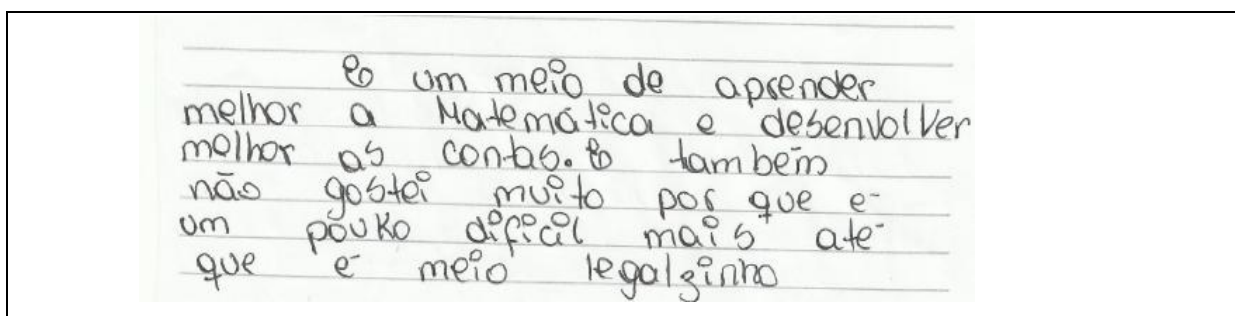 é um meio de aprender
melhor a Matemática e desenvolver
melhor as contas. é também
não gostei muito por que é
um pouko dificil mais até
que é meio legalzinho